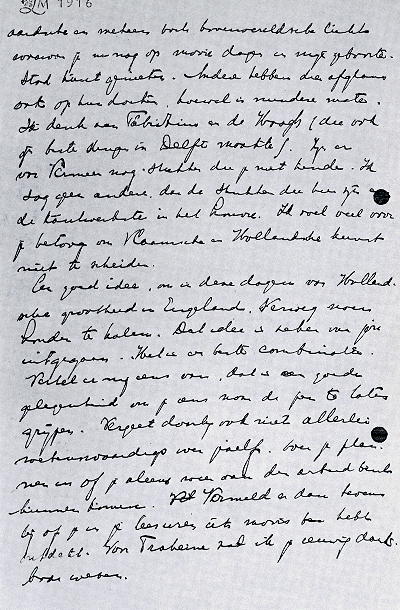 1916
aardsche en meteen toch bovenwereldsche lichte
waarvan je nu nog op mooie dagen in mijn geboorte-
stad kunt genieten. Andere hebben die afglans
ook op hun doeken, hoewel in mindere mate.
Ik denk aan Fabritius en de Hoogh (die ook
zijn beste dingen in Delft maakte). Zijn er
van Vermeer nog stukken die je niet kende. Ik
zag geen andere, dan de stukken die hier zijn en
de kantwerkster in het Louvre. Ik voel veel voor
je betoog om Vlaamsche en Hollandsche kunst
niet te scheiden.
Een goed idee, om in deze dagen van Holland-
sche grootheid in Engeland, Verwey
te halen. Dat idee is zeker van jou
uitgegaan. Het is de beste combinatie.
Vertel er mij eens van, dat is een goede
gelegenheid om je eens naar de pen te laten
grijpen. Vergeet daarbij ook niet allerlei
wetenswaardigs over jezelf, over je plan-
nen en of je alweer weer aan den arbeid bent
kunnen komen. Vermeld er dan tevens
bij of je in je iets moois hebt
ontdekt. Voor Traherne zal ik je eeuwig dank-
baar wezen.